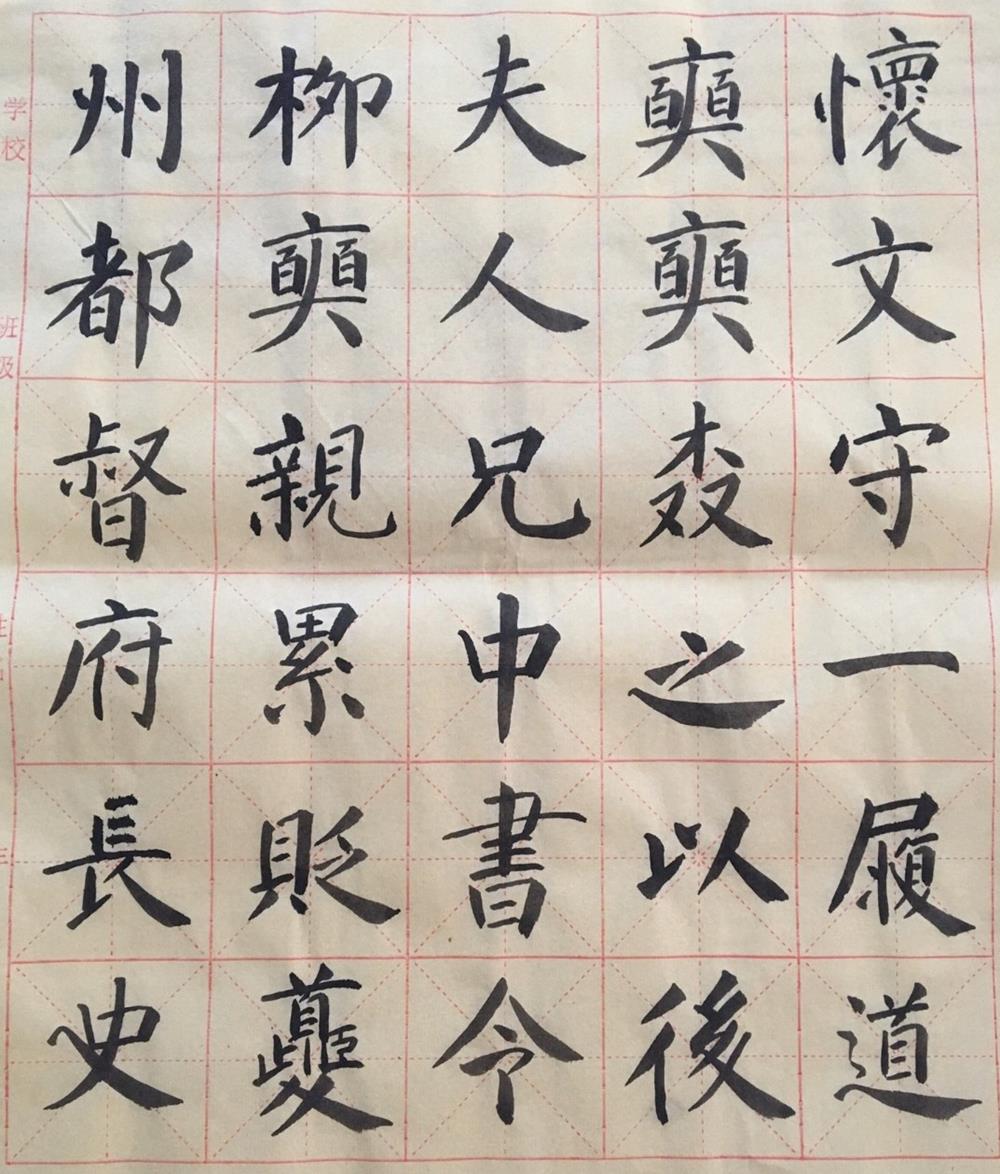 懷文守一履道
奭奭之以後
夫人兄中書令
柳奭親累貶夔
州都督府長史
学校
班级